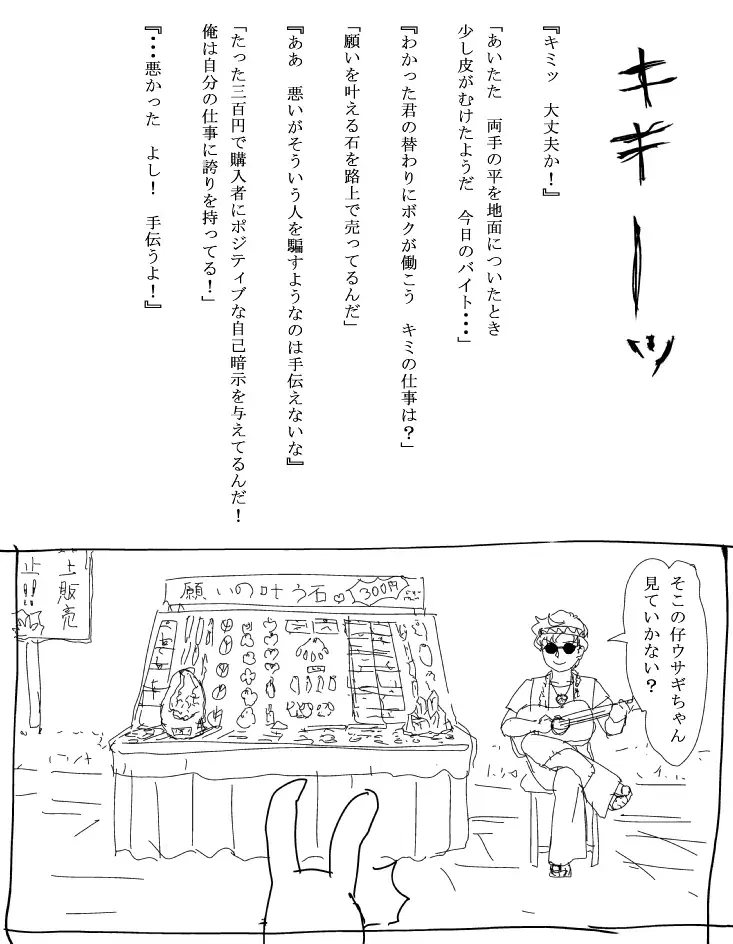 キキーッ
『キミッ　大丈夫か！』
「あいたた　両手の平を地面についたとき
少し皮がむけたようだ　今日のバイト・・・」
『わかった君の替わりにボクが働こう　キミの仕事は？」
「願いを叶える石を路上で売ってるんだ」
『ああ　悪いがそういう人を騙すようなのは手伝えないな』
「たった三百円で購入者にポジティブな自己暗示を与えてるんだ！
俺は自分の仕事に誇りを持ってる！」
『・・・悪かった　よし！　手伝うよ！』
上販売
止!!
願いの叶う石
300円
そこの仔ウサギちゃん
見ていかない？